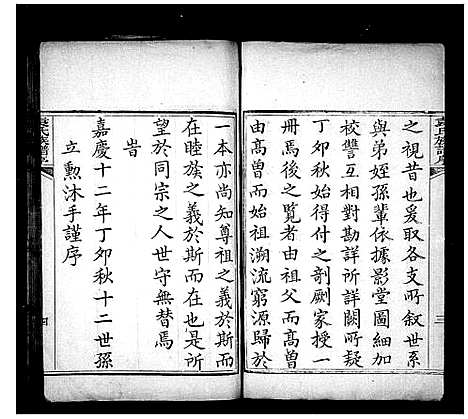 之視昔也爰取各支所叙世系
與弟姪孫輩依據影堂圖細加
校讐互相對勘詳所詳闕所疑
丁卯秋始得付之剞劂家授一
冊焉後之覧者由祖父而高曽
由高曽而始祖溯流窮源歸於
一本亦尚知尊祖之義於斯而
在睦族之義於斯而在也是所
望於同宗之人世守無替焉
旹
嘉慶十二年丁卯秋十二世孫
立勲沐手謹序